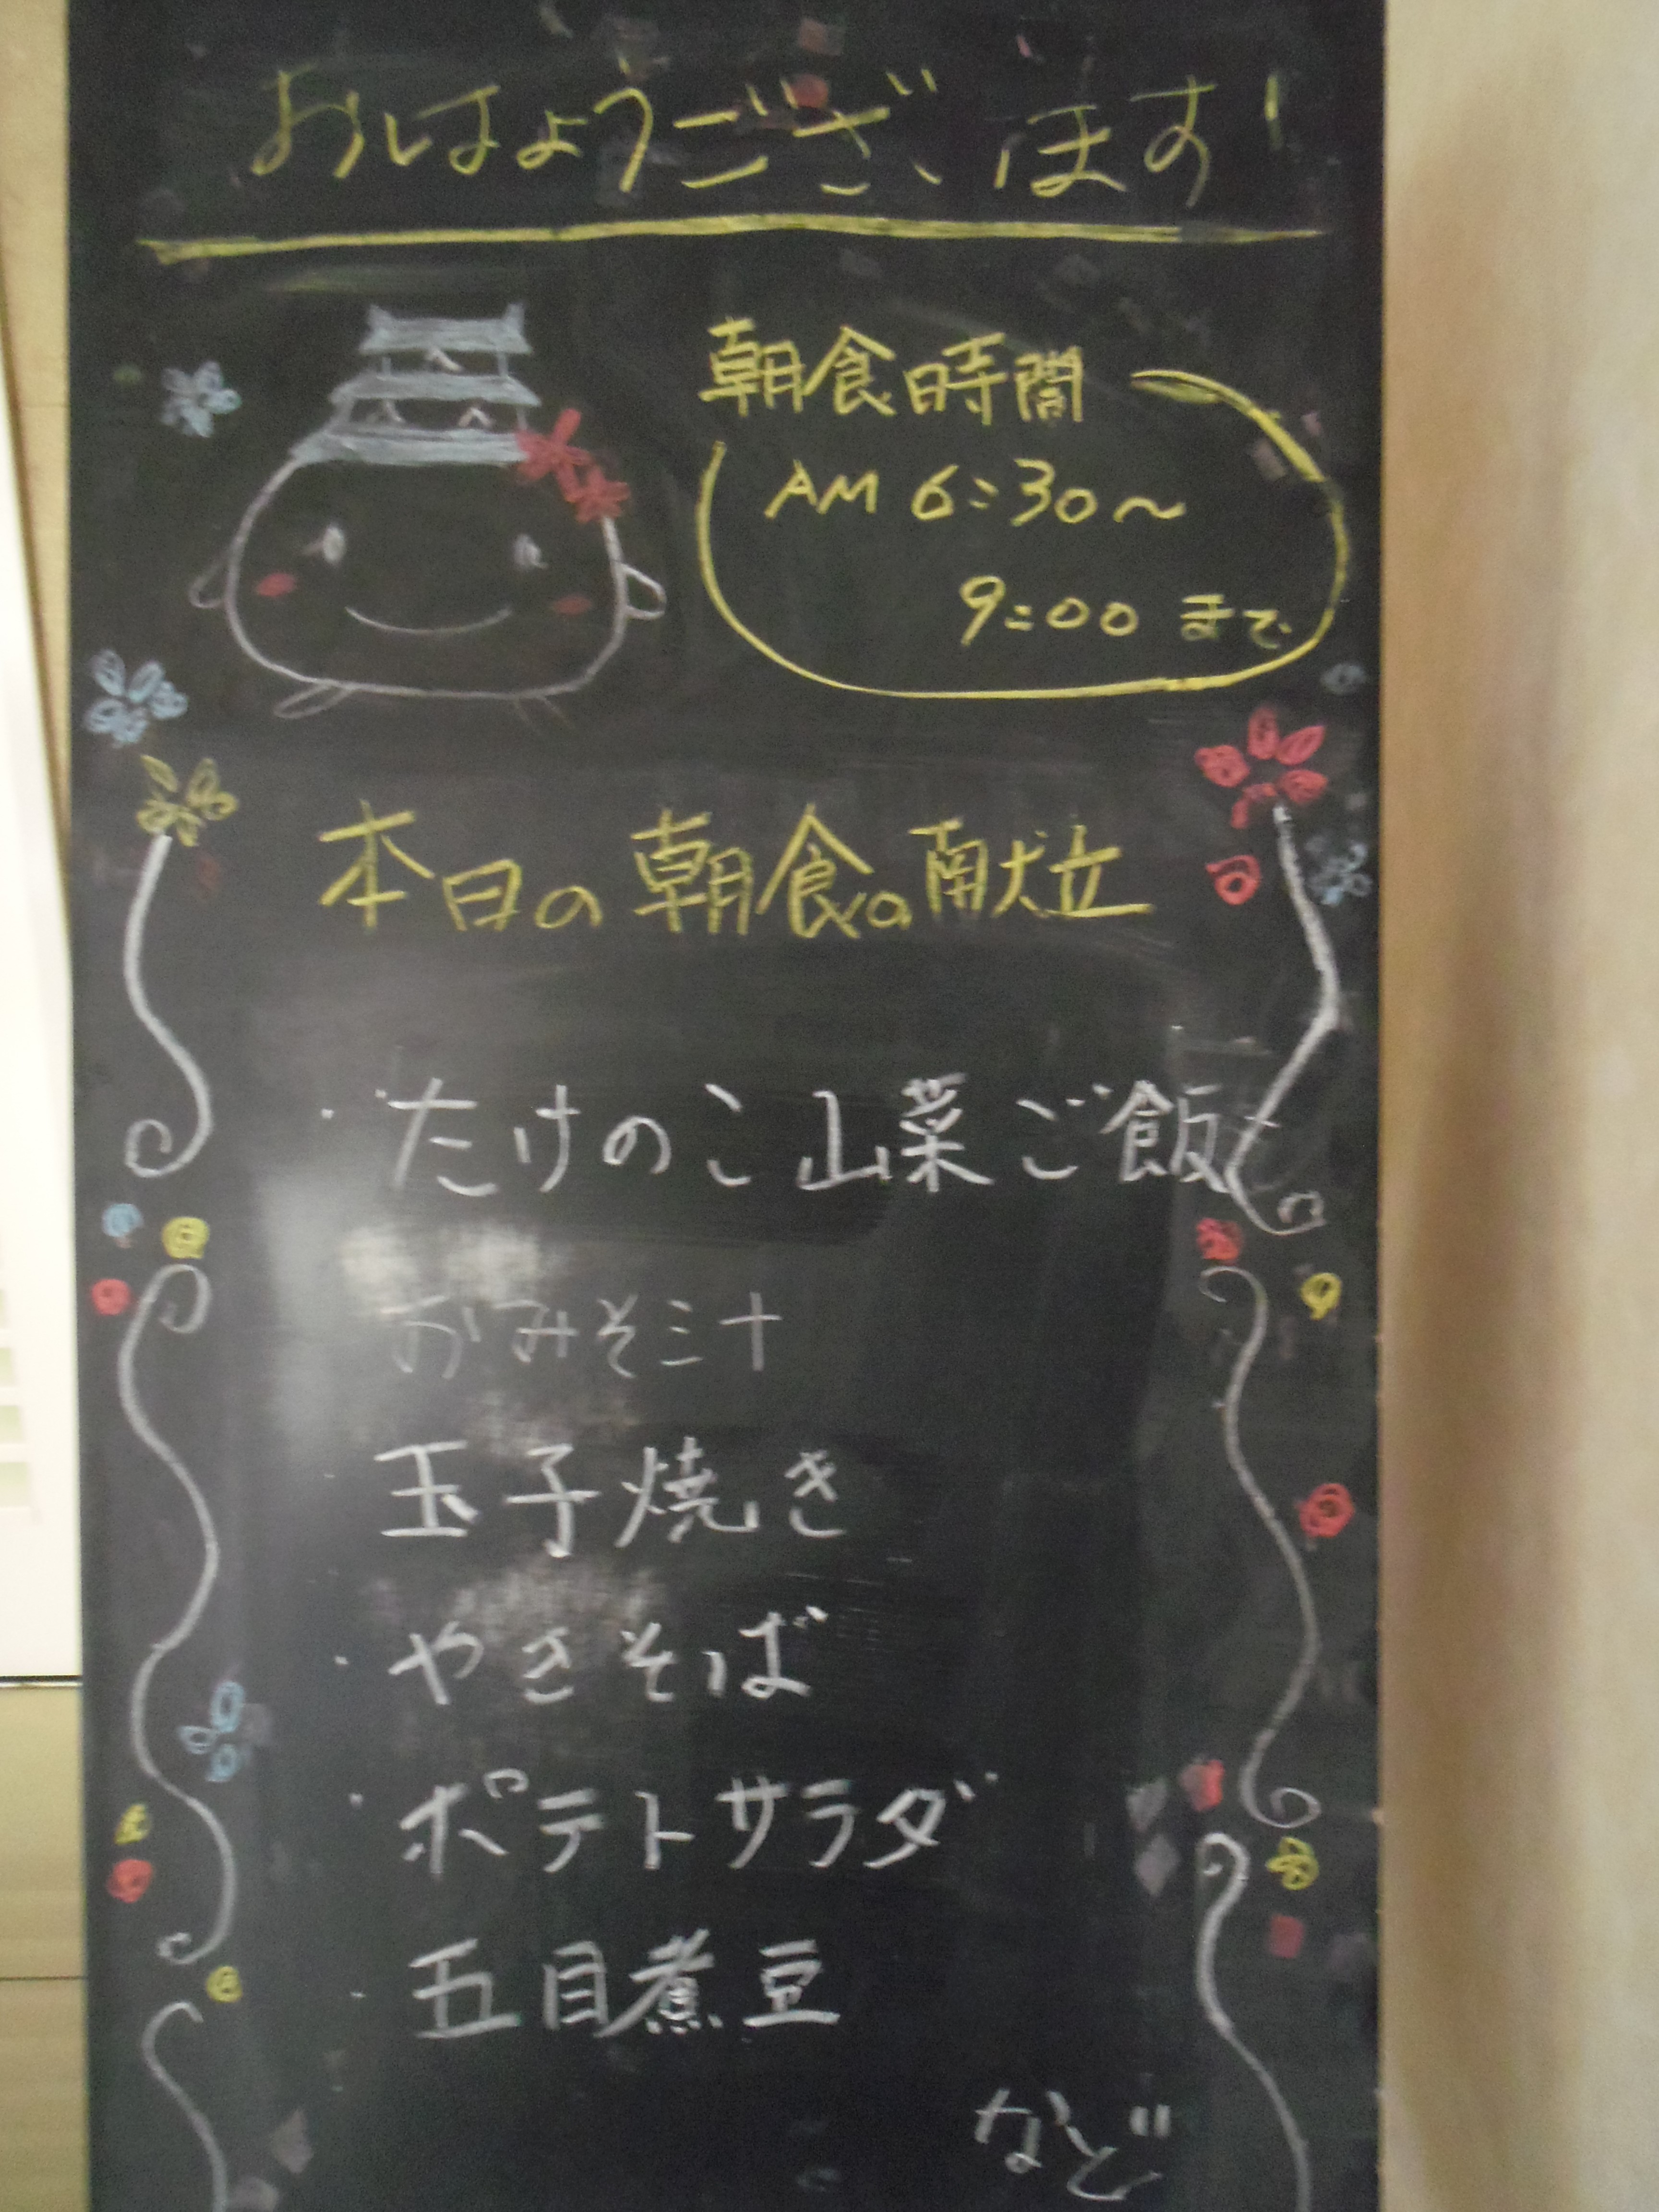 おはようございます!
朝食時間
AM 6:30〜
9:00 まで
本日の朝食の献立
・たけのこ山菜ご飯
おみそ汁
・玉子焼き
・やきそば
・ポテトサラダ
・五目煮豆
など